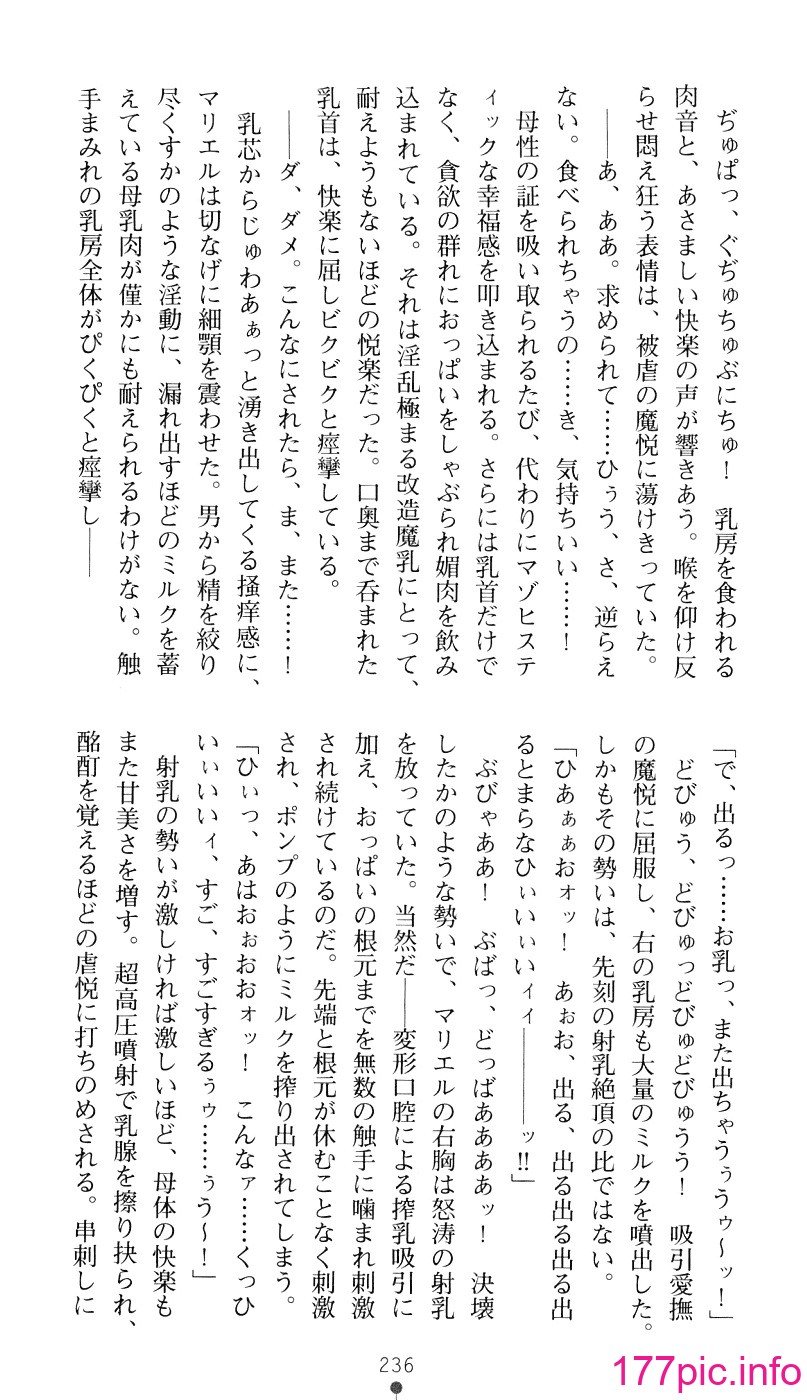 ぢゅぱっ、ぐぢゅちゅぶにちゅ！　乳房を食われる
肉音と、あさましい快楽の声が響きあう。喉を仰け反
らせ悶え狂う表情は、被虐の魔悦に蕩けきっていた。
――あ、ああ。求められて……ひぅう、さ、逆らえ
ない。食べられちゃうの……き、気持ちいい……！
母性の証を吸い取られるたび、代わりにマゾヒステ
ィックな幸福感を叩き込まれる。さらには乳首だけで
なく、貪欲の群れにおっぱいをしゃぶられ媚肉を飲み
込まれている。それは淫乱極まる改造魔乳にとって、
耐えようもないほどの悦楽だった。口奥まで呑まれた
乳首は、快楽に屈しビクビクと痙攣している。
――ダ、ダメ。こんなにされたら、ま、また……！
乳芯からじゅわあぁっと湧き出してくる掻痒感に、
マリエルは切なげに細顎を震わせた。男から精を絞り
尽くすかのような淫動に、漏れ出すほどのミルクを蓄
えている母乳肉が僅かにも耐えられるわけがない。触
手まみれの乳房全体がぴくぴくと痙攣し――
「で、出るっ……お乳っ、また出ちゃうぅうゥ～ッ！」
どびゅう、どびゅっどびゅどびゅうう！　吸引愛撫
の魔悦に屈服し、右の乳房も大量のミルクを噴出した。
しかもその勢いは、先刻の射乳絶頂の比ではない。
「ひあぁぁおォッ！　あぉお、出る、出る出る出る出
るとまらなひぃいぃいィィ――――ッ!!」
ぶびゃああ！　ぶばっ、どっばああああッ！　決壊
したかのような勢いで、マリエルの右胸は怒涛の射乳
を放っていた。当然だ――変形口腔による搾乳吸引に
加え、おっぱいの根元までを無数の触手に噛まれ刺激
され続けているのだ。先端と根元が休むことなく刺激
され、ポンプのようにミルクを搾り出されてしまう。
「ひぃっ、あはおぉおおォッ！　こんなァ……くっひ
いぃいいィ、すご、すごすぎるぅゥ……ぅう～！」
射乳の勢いが激しければ激しいほど、母体の快楽も
また甘美さを増す。超高圧噴射で乳腺を擦り抉られ、
酩酊を覚えるほどの虐悦に打ちのめされる。串刺しに
236
177pic.info